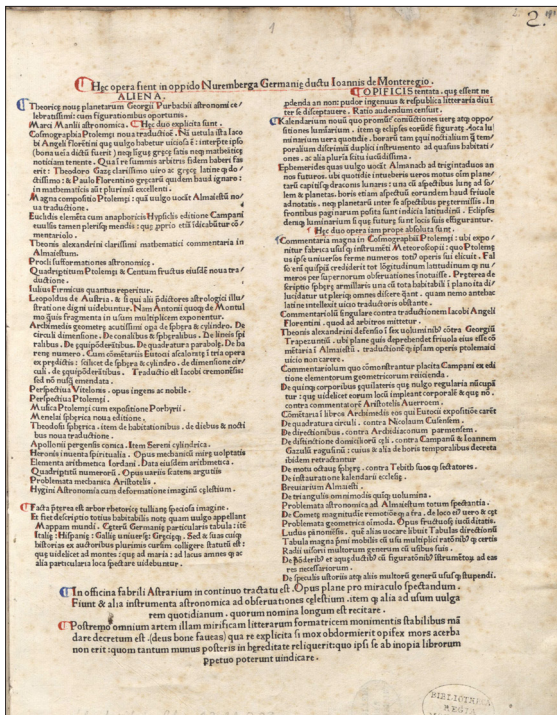 2.
1
Hęc opera fient in oppido Nuremberga Germanię ductu Ioannis de Monteregio.
ALIENA.
Theoricę nouę planetarum Georgii Purbachii astronomi ce/
lebratissimi: cum figurationibus oportunis.
Marci Manlii astronomica. Hęc duo explicita sunt.
Cosmographia Ptolemęi noua traductiōe. Nā uetula ista Iaco
bi Angeli florentini quę uulgo habetur uitiosa ē: interprete ipso
(bona uenia dictū fuerit) neq; linguę gręcę satis neq; mathematicę
noticiam tenente. Qua ī re summis arbitris fidem haberi fas
erit: Theodoro Gazę clarissimo uiro ac gręcę latineq; do/
ctissimo: & Paulo Florentino gręcarū quidem haud ignaro:
in mathematicis aūt plurimū excellenti.
Magna compositio Ptolemęi: quā uulgo uocāt Almaiestū no/
ua traductione.
Euclidis elemēta cum anaphoricis Hypsiclis editione Campani
euulsis tamen plerisq; mendis: quę ꝓprio etiā īdicabūtur cō/
mentariolo.
Theonis alexandrini clarissimi mathematici commentaria in
Almaiestum.
Procli sufformationes astronomicę.
Quadriptitum Ptolemęi & Centum fructus eiusdē noua tra/
ductione.
Iulius Firmicus quantus reperitur.
Leopoldus de Austria. & si qui alii pdictores astrologici illu/
stratione digni uidebuntur. Nam Antonii quoq; de Montul
mo q̄uis fragmenta in usum multiplicem exponentur.
Archimedis geometrę acutissimi opa de sphęra & cylindro. De
circuli dimensione. De conalibus & sphęralibus. De lineis spi
ralibus. De equipōderātibus. De quadratura parabolę. De ha
renę numero. Cum cōmētariis Eutocii ascalonitę ī tria opera
ex prędictis: scilicet de sphęra & cylindro. de dimensione cir/
culi. de equipōderātibus. Traductio est Iacobi cremonēsis:
sed nō nusq̄ emendata.
Perspectiua Vitelonis. opus ingens ac nobile.
Perspectiua Ptolemęi.
Musica Ptolemęi cum expositione Porhyrii.
Menelai sphęrica noua editione.
Theodosii sphęrica. item de habitationibus. de diebus & nocti
bus noua traductione.
Apollonii pergensis conica. Item Sereni cylindrica.
Heronis inuenta spiritualia. Opus mechanicū mirę uolptatis
Elementa arithmetica Iordani. Data eiusdem arithmetica.
Quadriptitū numerorū. Opus uariis scatens argutiis
Problemata mechanica Aristotelis.
Hygini Astronomia cum deformatione imaginū cęlestium.
Facta pterea est arbor rhetoricę tullianę speciosa imagine.
Et fiet descriptio totius habitabilis notę quam uulgo appellant
Mappam mundi. Cęterū Germanię particularis tabula: itē
Italię: Hispanię: Gallię uniuersę: Gręcięq;. Sed & suas cuiq;
historias ex auctoribus plurimis cursim colligere statutū est:
quę uidelicet ad montes: quę ad maria: ad lacus amnes q; ac
alia particularia loca spectare uidebuntur.
OPIFICIS tentata. quę essent ne
pdenda an non: pudor ingenuus & respublica litteraria diu ī
ter se disceptauere. Ratio audendum censuit.
Kalendarium nouū quo promūr cōiūctiones uerę atq; oppo/
sitiones luminarium. item q; eclipses eorūdē figuratę. loca lu/
minarium uera quotidie. horarū tam equinoctialium q̄ tem/
poralium discrimīa duplici instrumento ad quasuis habitati/
ones. ac alia plurīa scitu iucūdissima.
Ephemerides quas uulgo uocāt Almanach ad trigintaduos an
nos futuros. ubi quotidie intueberis ueros motus oīm plane/
tarū capitisq; draconis lunaris: una cū aspectibus lunę ad so/
lem & planetas. horis etiam aspectuū eorundem haud friuole
adnotatis. neq; planetarū inter se aspectibus prętermissis. In
frontibus paginarum posita sunt indicia latitudinū. Eclipses
deniq; luminarium si quę futurę sunt locis suis effigurantur.
Hęc duo opera iam prope absoluta sunt.
Commentaria magna in Cosmographiā Ptolemęi: ubi expo/
nitur fabrica usus q; instrumēti Meteoroscopii: quo Ptolemę
us ipse uniuersos ferme numeros totiꝰ operis sui elicuit. Fal
so enī quispiā crediderit tot lōgitudinum latitudinum q; nu/
meros per supernorum obseruationes īnotuisse. Pręterea de
scriptio sphęrę armillaris una cū tota habitabili ī plano ita di/
lucidatur ut pleriq; omnes discere q̄ant. quam nemo antehac
latine intellexit uicio traductoris obstante.
Commentariolū singulare contra traductionem Iacobi Angeli
Florentini. quod ad arbitros mittetur.
Theonis alexandrini defensio ī sex uoluminibꝰ cōtra Georgiū
Trapezuntiū. ubi plane quis deprehendet friuola eius esse cō
mētaria ī Almaiestū. traductionē q; ipsam operis ptolemaici
uicio non carere.
Commentariolum quo cōmonstrantur placita Campani ex edi
tione elementorum geometricorum reiicienda.
De quinq; corporibus equilateris quę uulgo regularia nūcupā
tur: quę uidelicet eorum locū impleant corporalē & quę nō.
contra commentatorē Aristotelis Auerroem.
Cōmētaria ī libros Archimedis eos qui Eutocii expositiōe carēt
De quadratura circuli. contra Nicolaum Cusensem.
De directionibus. contra Archidiaconum parmensem.
De distinctione domiciliorū cęli. contra Campanū & Ioannem
Gazulū ragusinū: cuius & alia de horis temporalibus decreta
ibidem retractantur
De motu octauę sphęrę. contra Tebith suosq; sectatores.
De instauratione kalendarii ecclesię.
Breuiarium Almaiesti.
De triangulis omnimodis quīq; uolumina.
Problemata astronomica ad Almaiestum totum spectantia.
De Cometę magnitudine remotiōe q; a terra. de loco eiꝰ uero & cęt
Problemata geometrica oīmoda. Opus fructuosę iucūditatis.
Ludus pannoniensis. quē alias uocare libuit Tabulas directionū
Tabula magna pmi mobilis cū usu multiplici ratōībꝰ q; certis
Radii uisorii multorum generum cū usibus suis.
De pōderibꝰ et aquęductibꝰ cū figuratōībꝰ īstrumētoꝝ ad eas
res necessariorum.
De speculis ustoriis atq; aliis multorū generū ususq; stupendi.
In officina fabrili Astrarium in continuo tractatu est. Opus plane pro miraculo spectandum.
Fiunt & alia instrumenta astronomica ad obseruationes cęlestium. item q; alia ad usum uulga
rem quotidianum. quorum nomina longum est recitare.
Postremo omnium artem illam mirificam litterarum formatricem monimentis stabilibus mā
dare decretum est. (deus bone faueas) qua re explicita si mox obdormierit opifex mors acerba
non erit: quom tantum munus posteris in hęreditate reliquerit: quo ipsi se ab inopia librorum
ꝑpetuo poterunt uindicare.
BIBLIOTHECA
REGIA